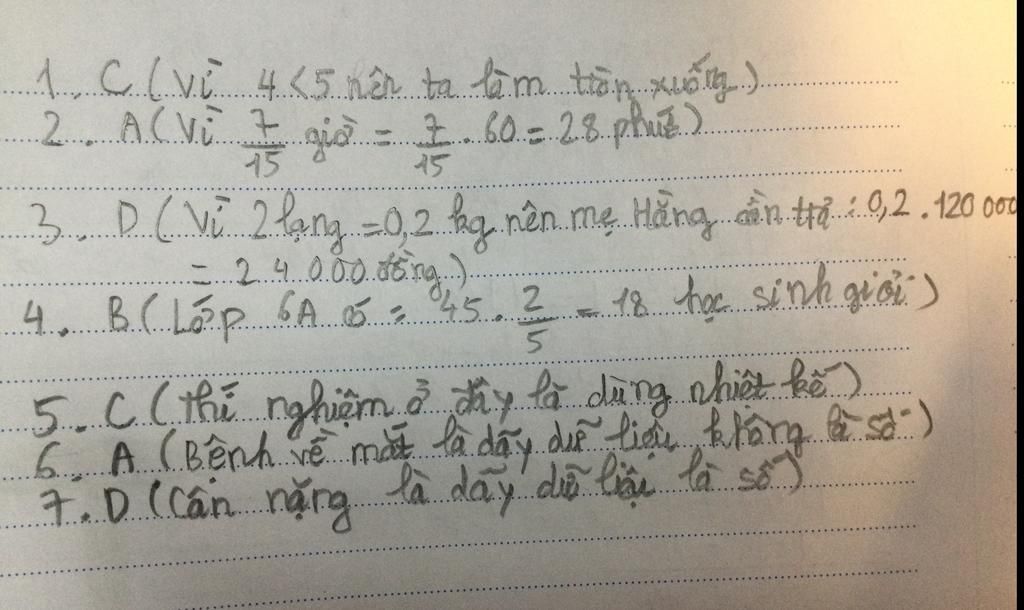 1. C (Vì 4 < 5 nên ta làm tròn xuống)
2. A (Vì 7/15 giờ = 7/15 . 60 = 28 phút)
3. D (Vì 2 lạng = 0,2 kg nên mẹ Hằng cần trả : 0,2 . 120 000
= 24 000 đồng)
4. B (Lớp 6A có = 45 . 2/5 = 18 học sinh giỏi)
5. C (thí nghiệm ở đây là dùng nhiệt kế)
6. A (Bệnh về mắt là dãy dữ liệu không là số)
7. D (Cân nặng là dãy dữ liệu là số)